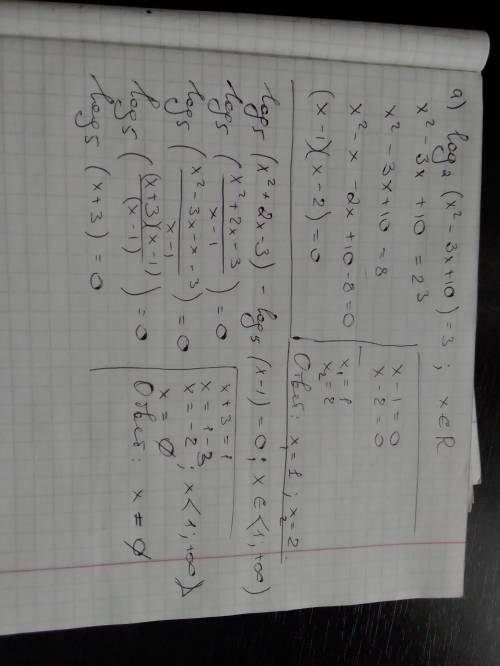 a) log₂ (x² - 3x + 10) = 3 ; x ∈ R
x² - 3x + 10 = 2³
x² - 3x + 10 = 8
x² - x - 2x + 10 - 8 = 0
(x - 1)(x - 2) = 0
x - 1 = 0
x - 2 = 0
x₁ = 1
x₂ = 2
Ответ: x₁ = 1 ; x₂ = 2.
log₅ (x² + 2x - 3) - log₅ (x - 1) = 0 ; x ∈ <1 ; +∞)
log₅ ( x² + 2x - 3 / x - 1 ) = 0
log₅ ( x² - 3x - x - 3 / x - 1 ) = 0
log₅ ( (x + 3)(x - 1) / (x - 1) ) = 0
log₅ (x + 3) = 0
x + 3 = 1
x = 1 - 3
x = -2 ; x < 1 ; +∞)
x = ∅
Ответ: x = ∅